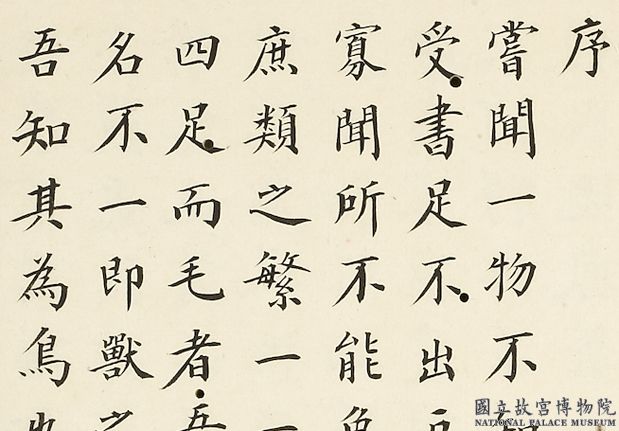 序
嘗聞一物不知
受書足不出戶
寡聞所不能免
庶類之繁一一
四足而毛者吾
名不一即獸之
吾知其為鳥也
國立故宮博物院
NATIONAL PALACE MUSEUM